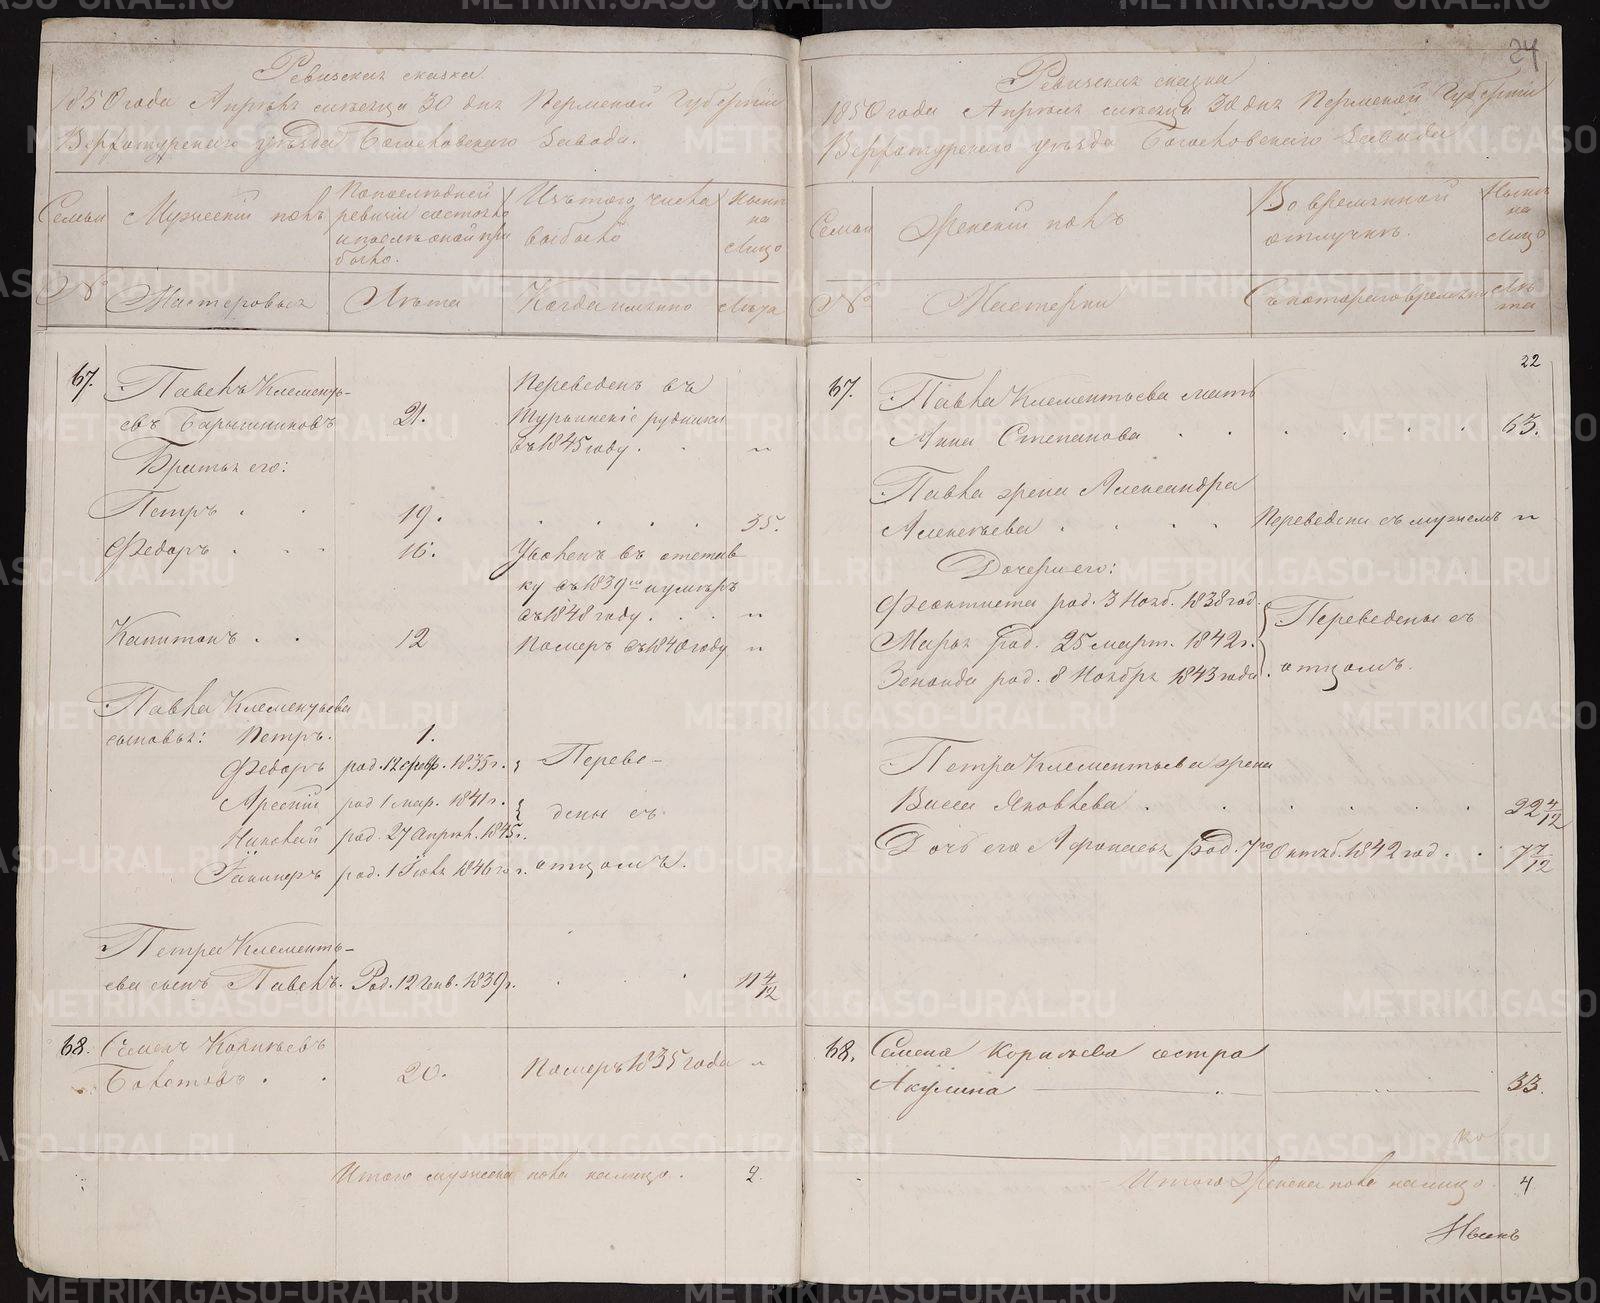 Ревизская сказка
1850 года Апреля месяца 30 дня Пермской Губернии
Верхотурского уезда Богословского Завода.
Семьи
Мужеский полъ
По последней ревизии состояло и после оной прибыло.
Изъ того числа выбыло
Ныне на лицо
№
Мастеровыя
Лета
Когда именно
Лета
67.
Павелъ Клементь-
евъ Барышниковъ
21.
Переведенъ въ
Турьинскіе рудники
въ 1845 году.
"
Братья его:
Петръ
19.
35.
Федоръ
16.
Уволенъ въ отстав
ку въ 1839м и умеръ
въ 1848 году.
"
Капитонъ
12
Померъ въ 1840 году
"
Павла Клементьева
сыновья: Петръ.
1.
Федоръ род. 12 февр. 1835 г.
Арсеній род 1 мар. 1841 г.
род. 27 Апрел. 1845 г.
род. 1 1846 го г.
Переве-
дены съ
отцомъ.
Петра Клементь-
ева сынъ Павелъ.
Род. 12 Генв. 1839 г.
11 4/12
68.
Семенъ Корнильевъ
20.
Померъ 1835 года
"
Итого мужеска пола налицо.
2.
24
Ревизская сказка
1850 года Апреля месяца 30 дня Пермской Губерніи
Верхотурского уезда Богословского Завода
Семьи
Женскій полъ
Во временной отлучке.
Ныне на лицо
№
Мастерки
Съ котораго времени
Лета
22
67.
Павла Клементьева мать
Анна Степанова
63.
Павла жена Александра
Алексеева
Переведена съ мужемъ
"
Дочери его:
Феоктиста род. 3 Нояб. 1838 год.
Марья род. 25 март. 1842 г.
Зенаида род. 8 Ноября 1843 года.
Переведены съ
отцомъ.
Петра Клементьева жена
Васса Яковлева
22 4/12
Дочь его Афанасья род. 7го Октяб. 1842 год.
7 7/12
68.
Семена Корнильева сестра
Акулина
33.
Итого Женска пола налицо.
4